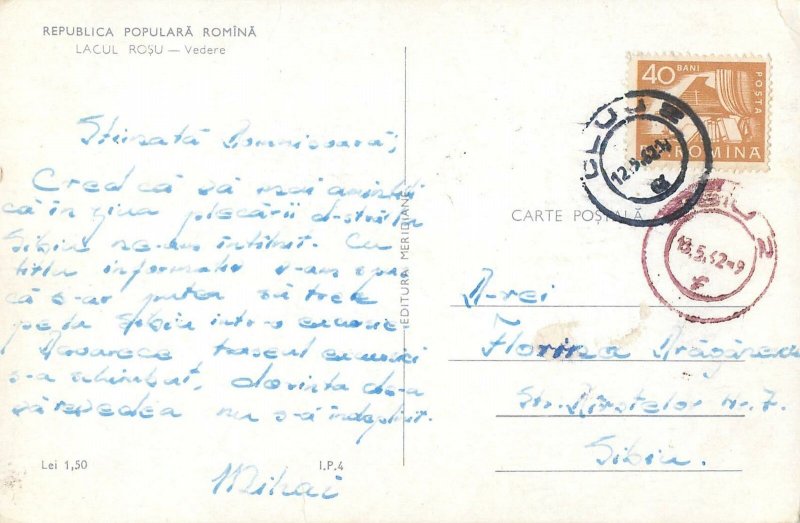 REPUBLICA POPULARĂ ROMÎNĂ
LACUL ROȘU — Vedere
Stimată Domnișoară,
Cred că vă mai amintiți
că în ziua plecării d-stră la
Sibiu ne-am întîlnit. Cu
titlu informativ v-am spus
că s-ar putea să trec
pe la Sibiu într-o excursie
Deoarece traseul excursiei
s-a schimbat, dorința de-a
vă revedea nu s-a îndeplinit.
Mihai
Lei 1,50
I.P.4
EDITURA MERIDIANE
40 BANI
POSTA
R.P.ROMINA
CLUJ 2
12.9.62
CARTE POȘTALĂ
SIBIU 2
13.5.62-9
D-rei
Florina Drăgănescu
Str. nr. 7.
Sibiu.